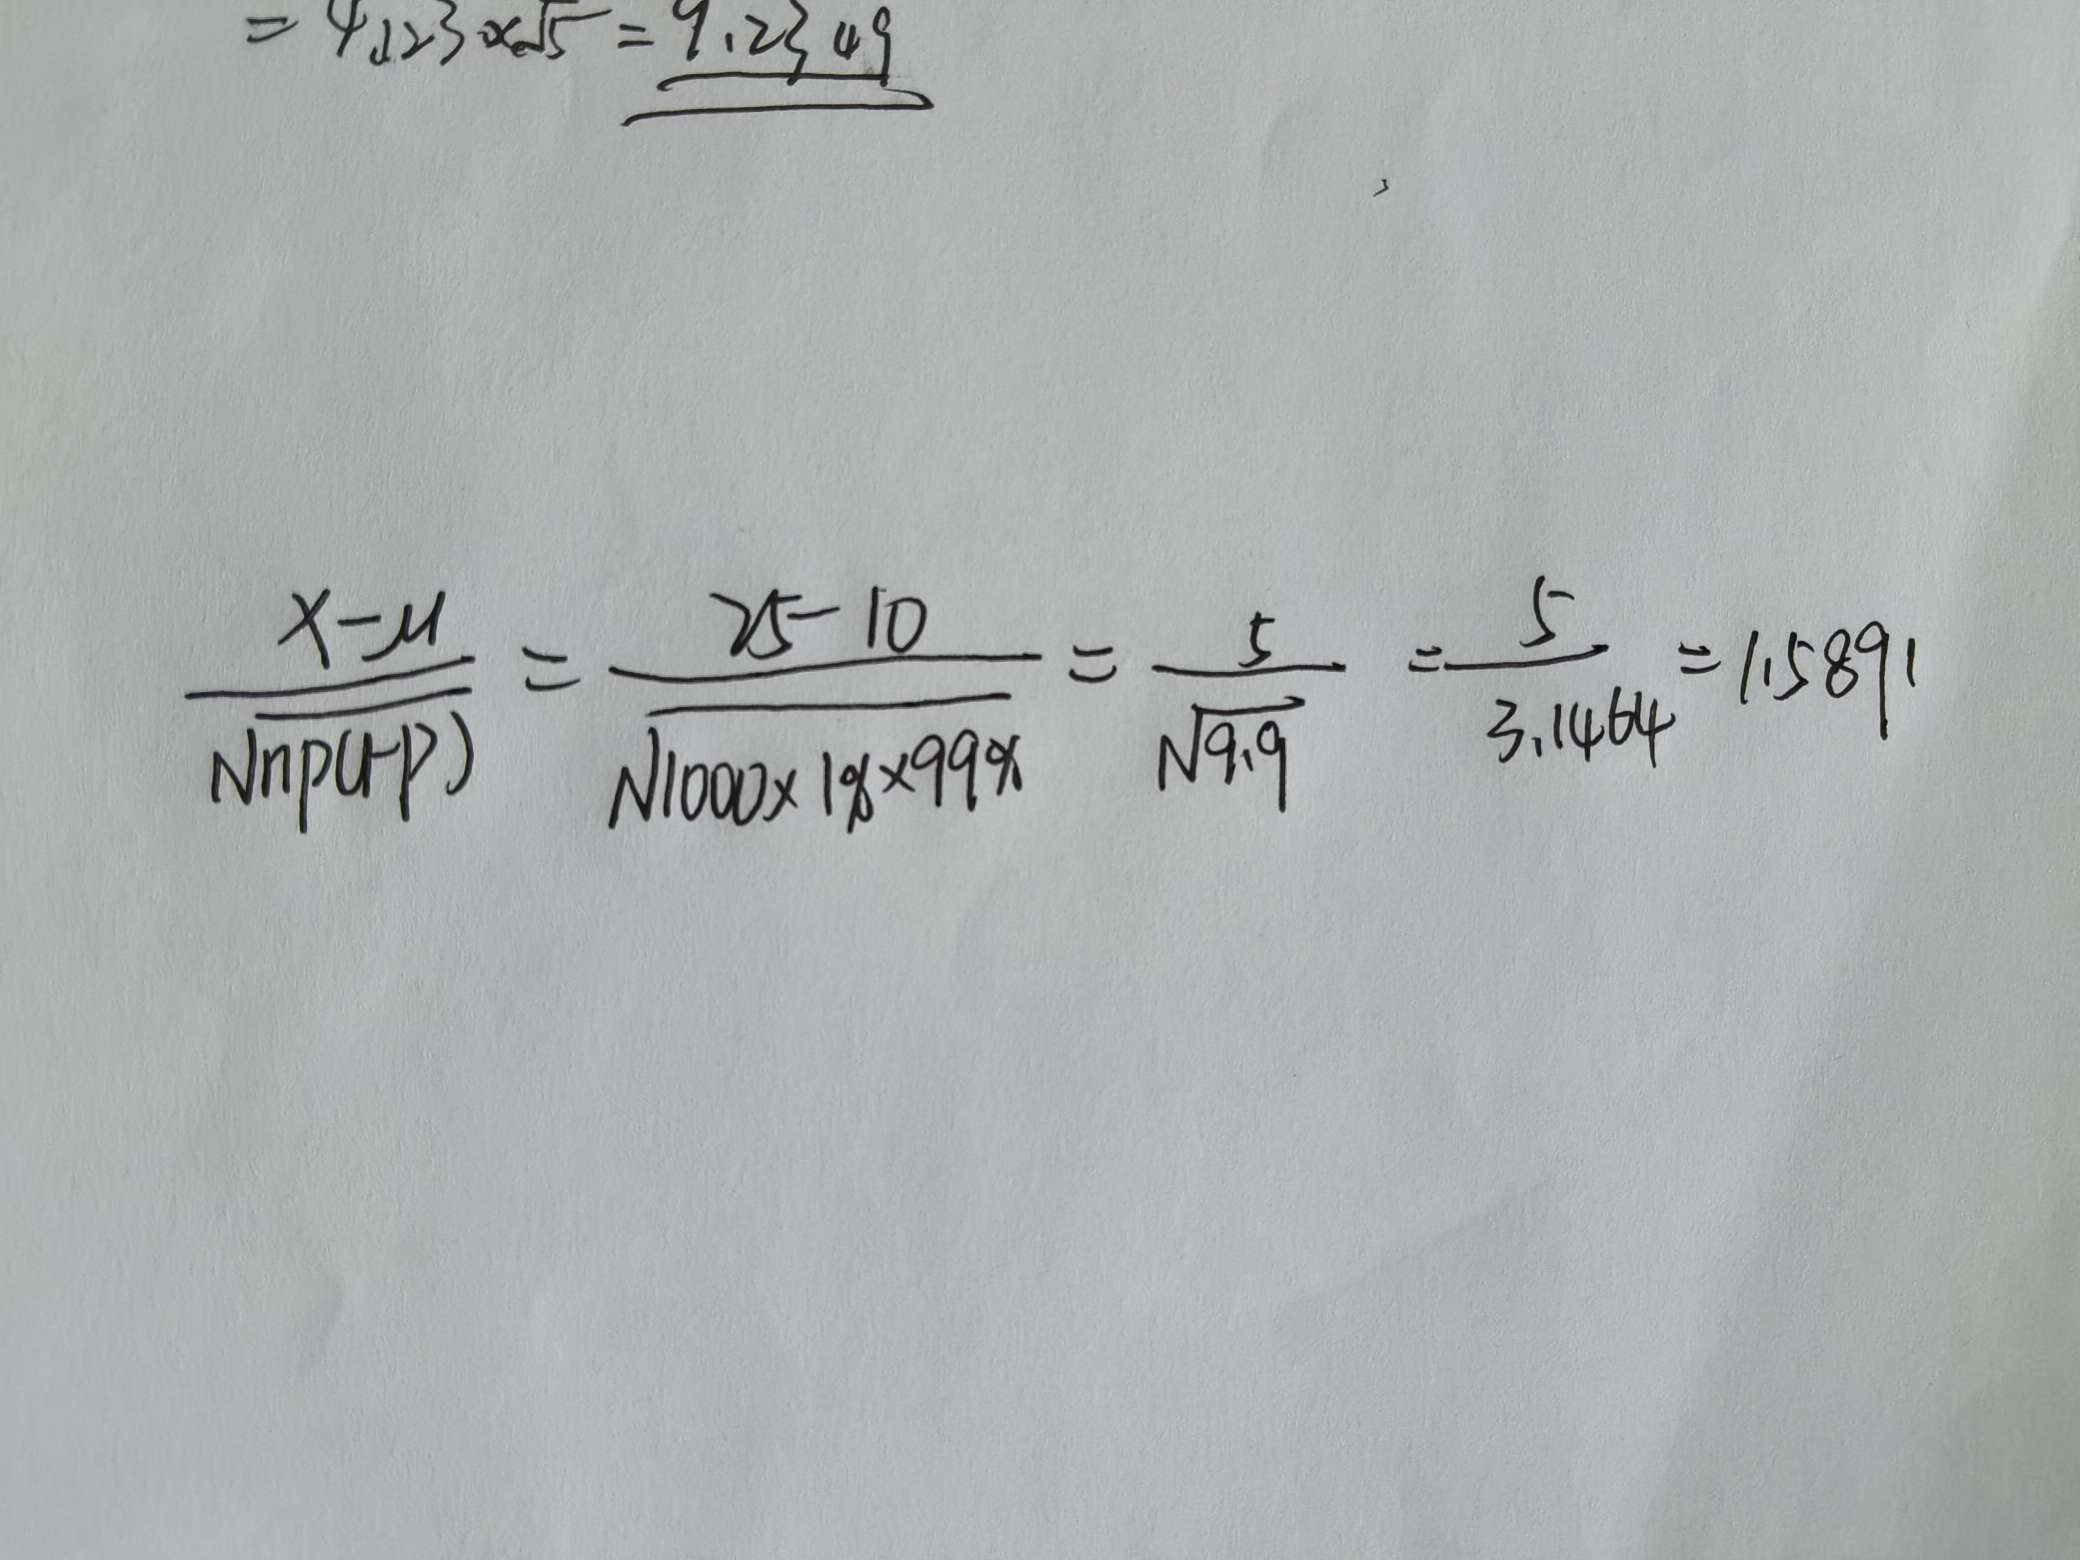 = 4.123 × √5 = 9.2349
(X-μ)/√np(1-p) = (25-10)/√1000×1%×99% = 5/√9.9 = 5/3.1464 = 1.5891